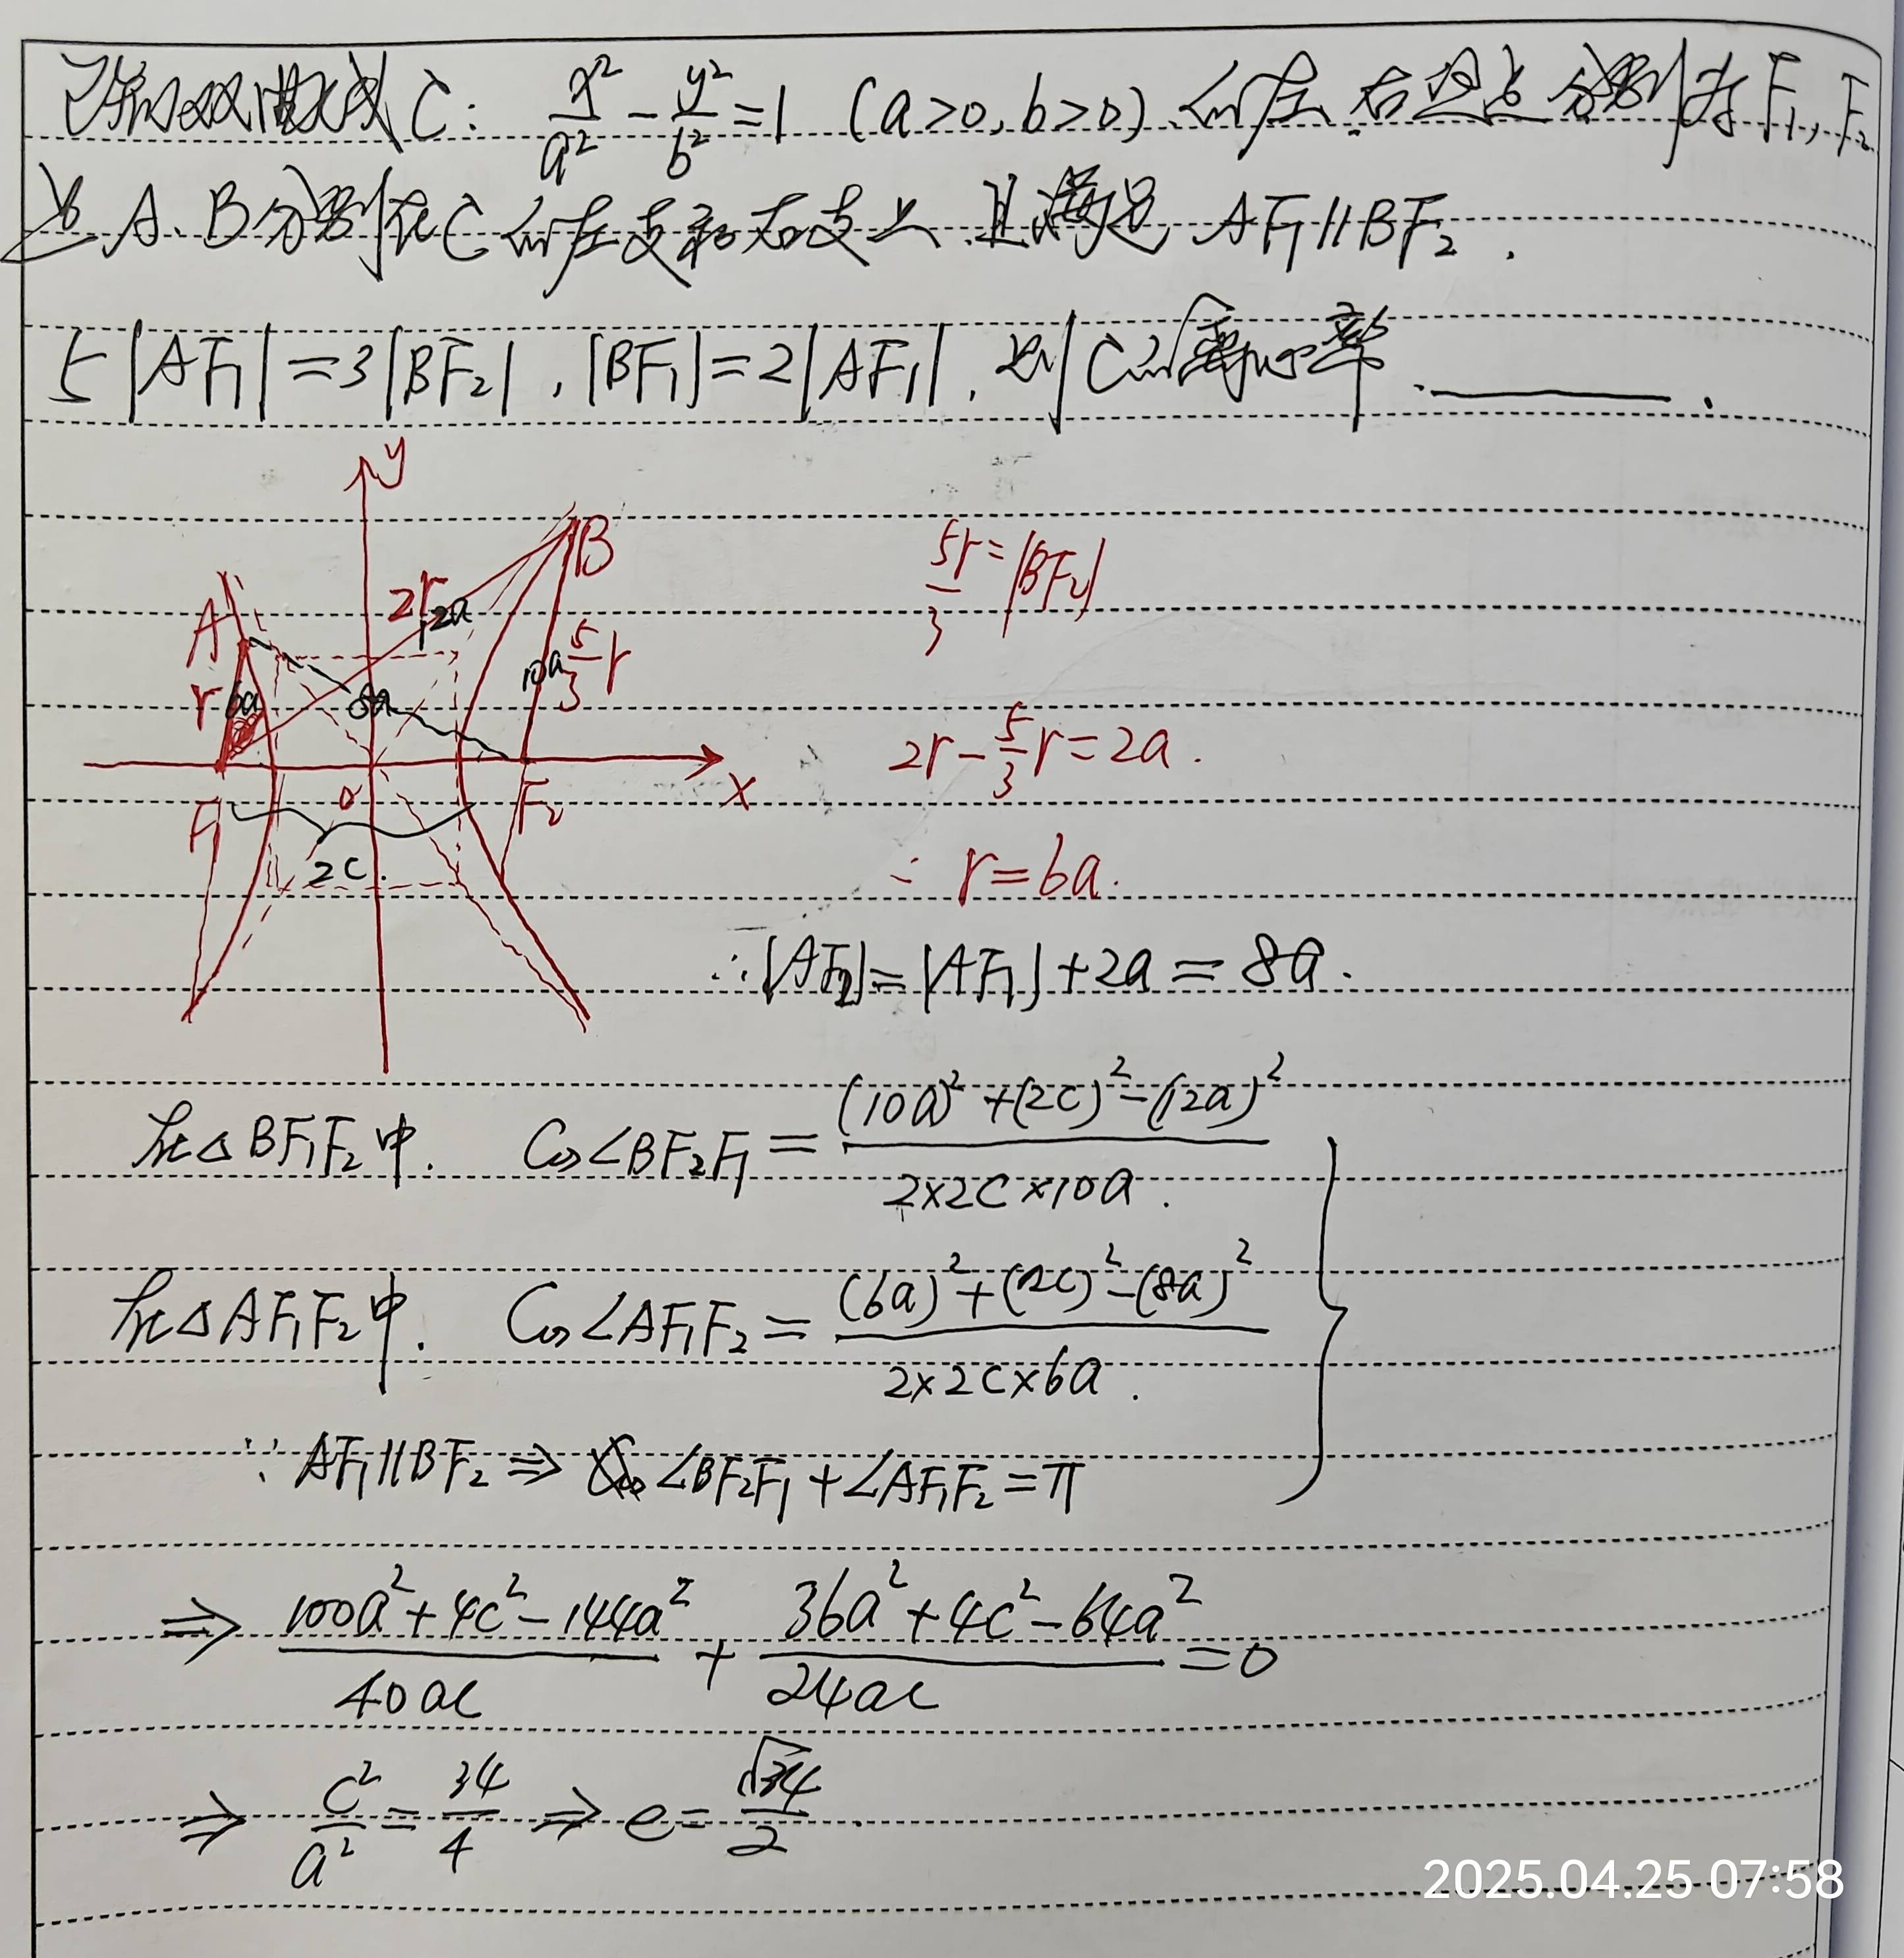 已知双曲线C: x²/a² - y²/b² = 1 (a>0, b>0) 的左、右焦点分别为F₁, F₂
点A、B分别在C的左支和右支上,且满足 AF₁∥BF₂.
5|AF₁|=3|BF₂|, |BF₁|=2|AF₁|, 则C的离心率 ______.
y
B
2r
12a
A
r
6a
8a
10a
5/3 r
x
F₁
O
F₂
2c.
5r/3 = |BF₂|
2r - 5/3 r = 2a.
∴ r = 6a.
∴|AF₂| = |AF₁| + 2a = 8a.
在△BF₁F₂中. Cos∠BF₂F₁ = ((10a)² + (2c)² - (12a)²)/(2×2c×10a).
在△AF₁F₂中. Cos∠AF₁F₂ = ((6a)² + (2c)² - (8a)²)/(2×2c×6a).
∵ AF₁∥BF₂ ⇒ ∠BF₂F₁ + ∠AF₁F₂ = π
⇒ (100a² + 4c² - 144a²)/(40ac) + (36a² + 4c² - 64a²)/(24ac) = 0
⇒ c²/a² = 34/4 ⇒ e = √34/2.
2025.04.25 07:58